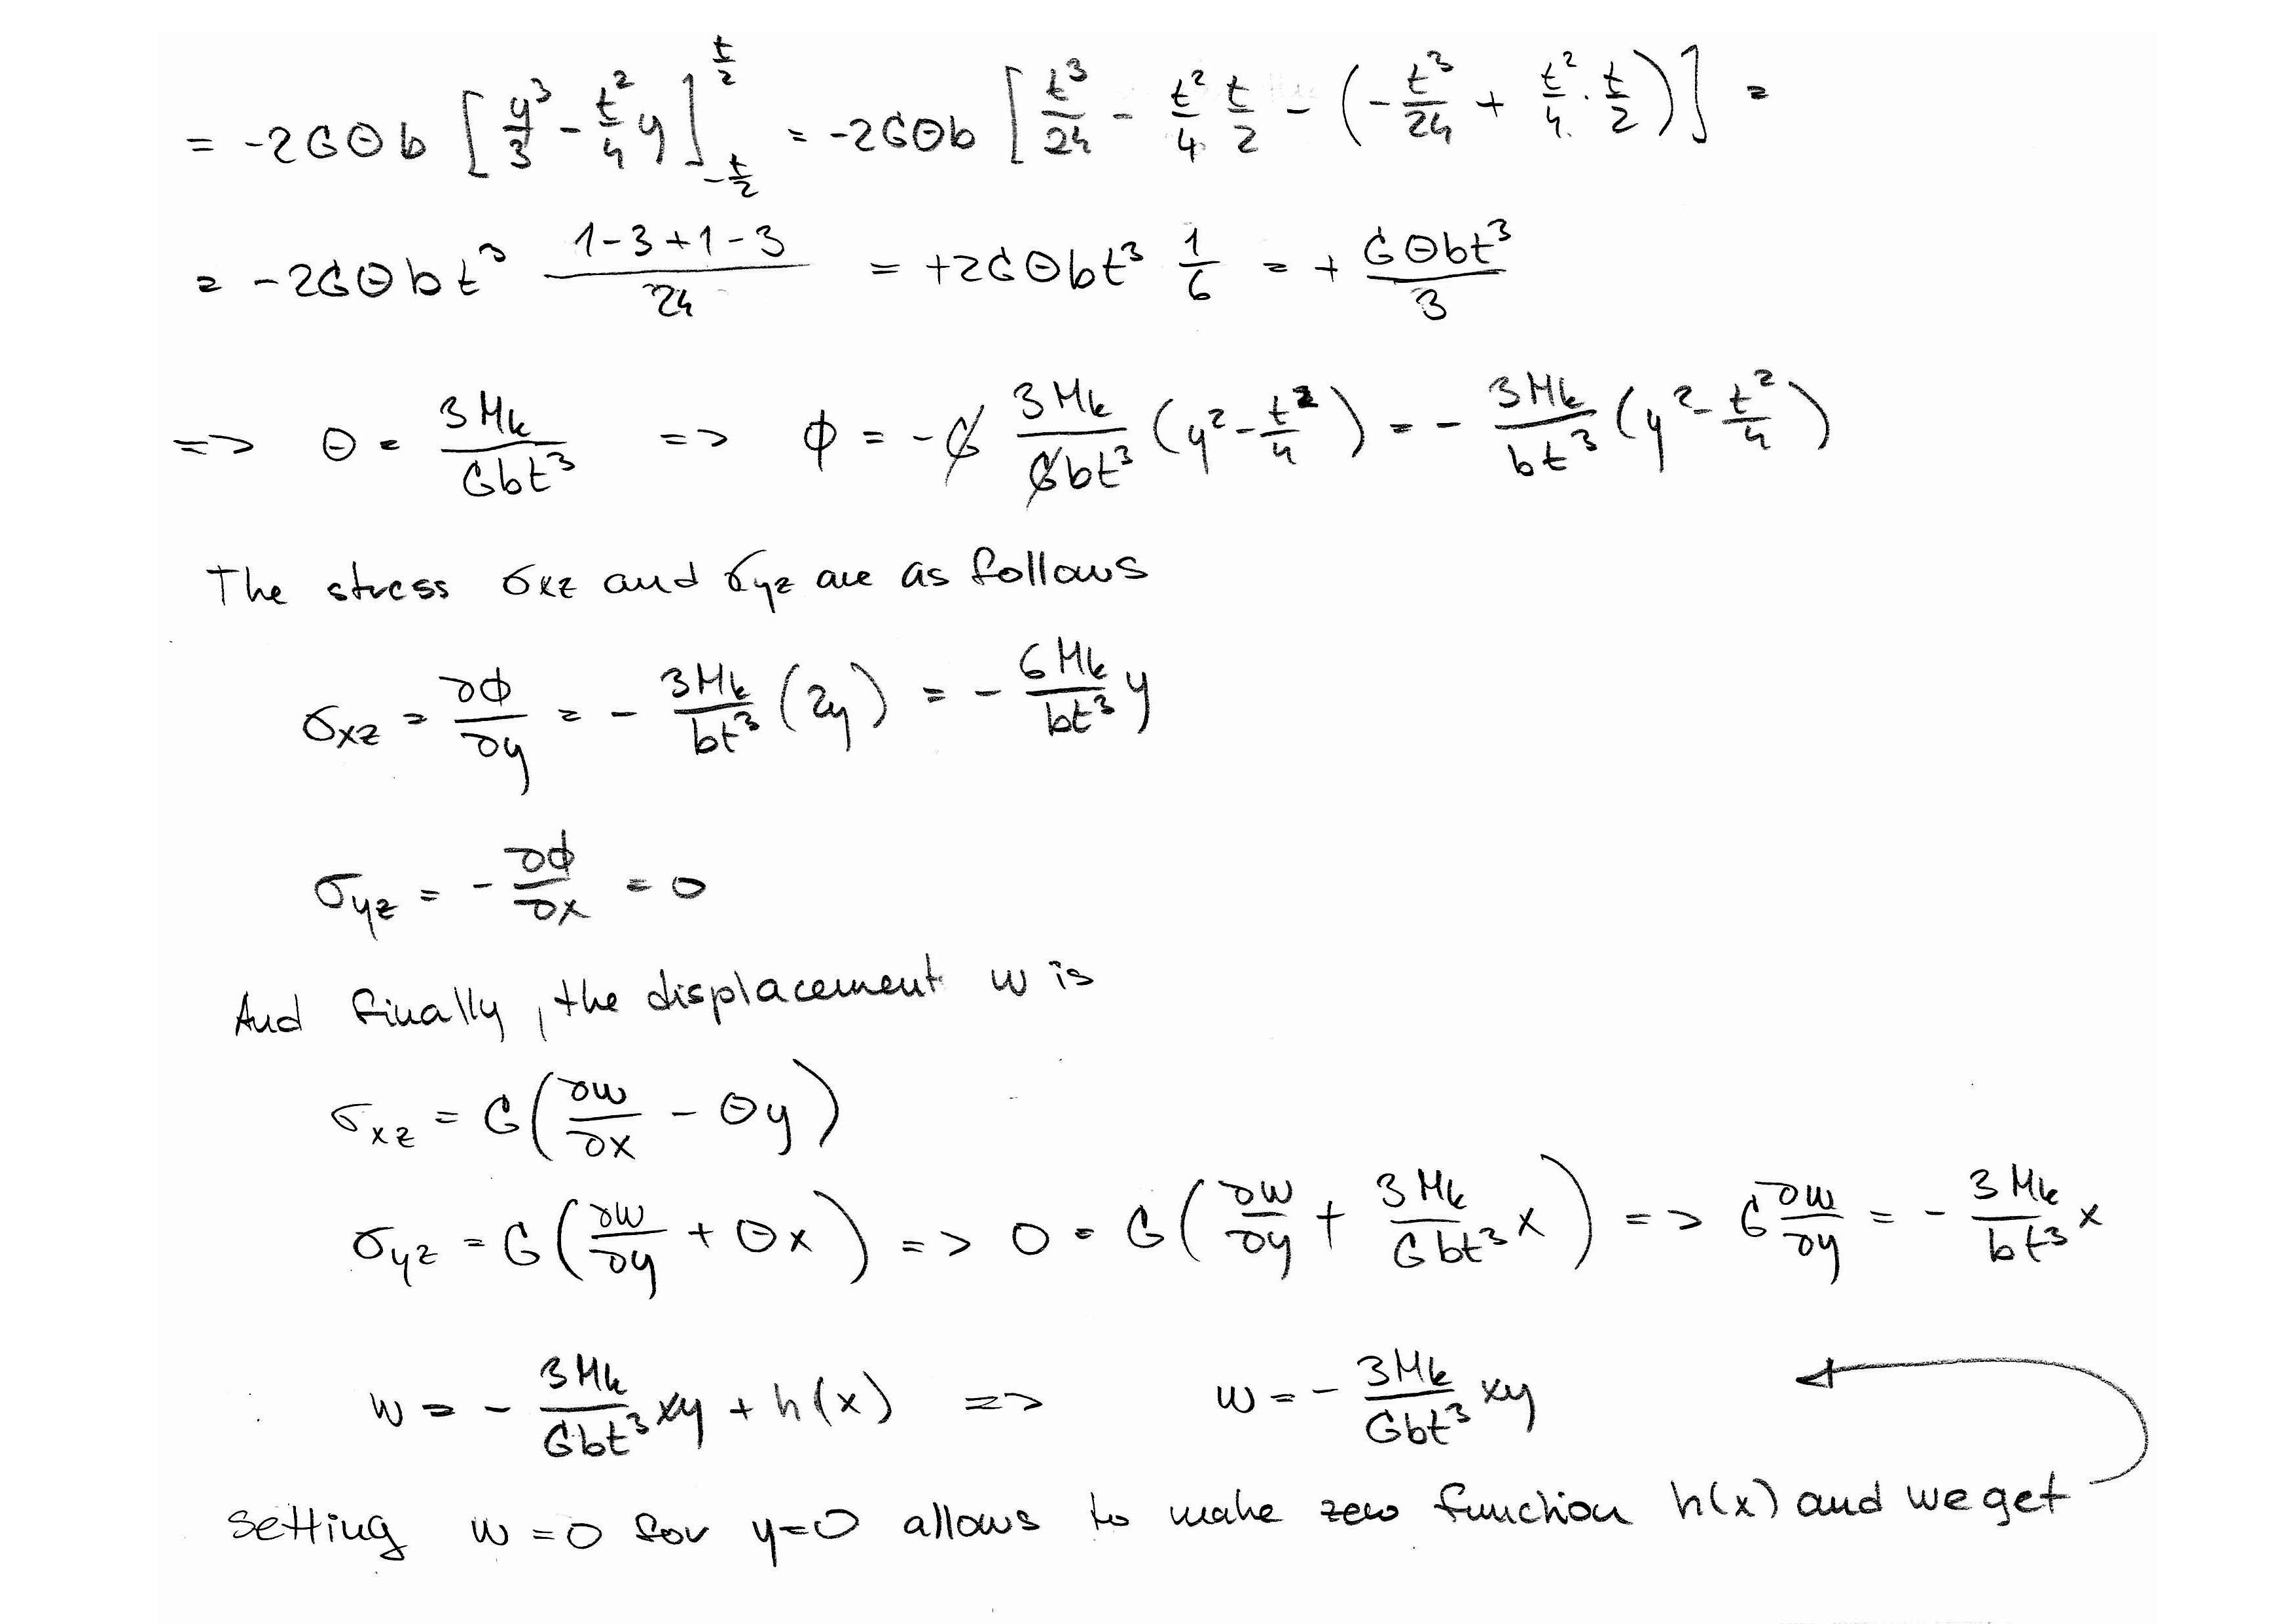 = -2GΘb [y³/3 - t²/4 y]_{-t/2}^{t/2} = -2GΘb [t³/24 - t²/4 t/2 - (-t³/24 + t²/4 · t/2)] =
= -2GΘbt³ (1-3+1-3)/24 = +2GΘbt³ 1/6 = + GΘbt³/3
=> Θ = 3Mk/Gbt³ => ϕ = -G 3Mk/Gbt³ (y² - t²/4) = - 3Mk/bt³ (y² - t²/4)
The stress σxz and σyz are as follows
σxz = ∂ϕ/∂y = - 3Mk/bt³ (2y) = - 6Mk/bt³ y
σyz = - ∂ϕ/∂x = 0
And finally, the displacement w is
σxz = G(∂w/∂x - Θy)
σyz = G(∂w/∂y + Θx) => 0 = G(∂w/∂y + 3Mk/Gbt³ x) => G ∂w/∂y = - 3Mk/bt³ x
w = - 3Mk/Gbt³ xy + h(x) => w = - 3Mk/Gbt³ xy
setting w = 0 for y=0 allows to make zero function h(x) and we get